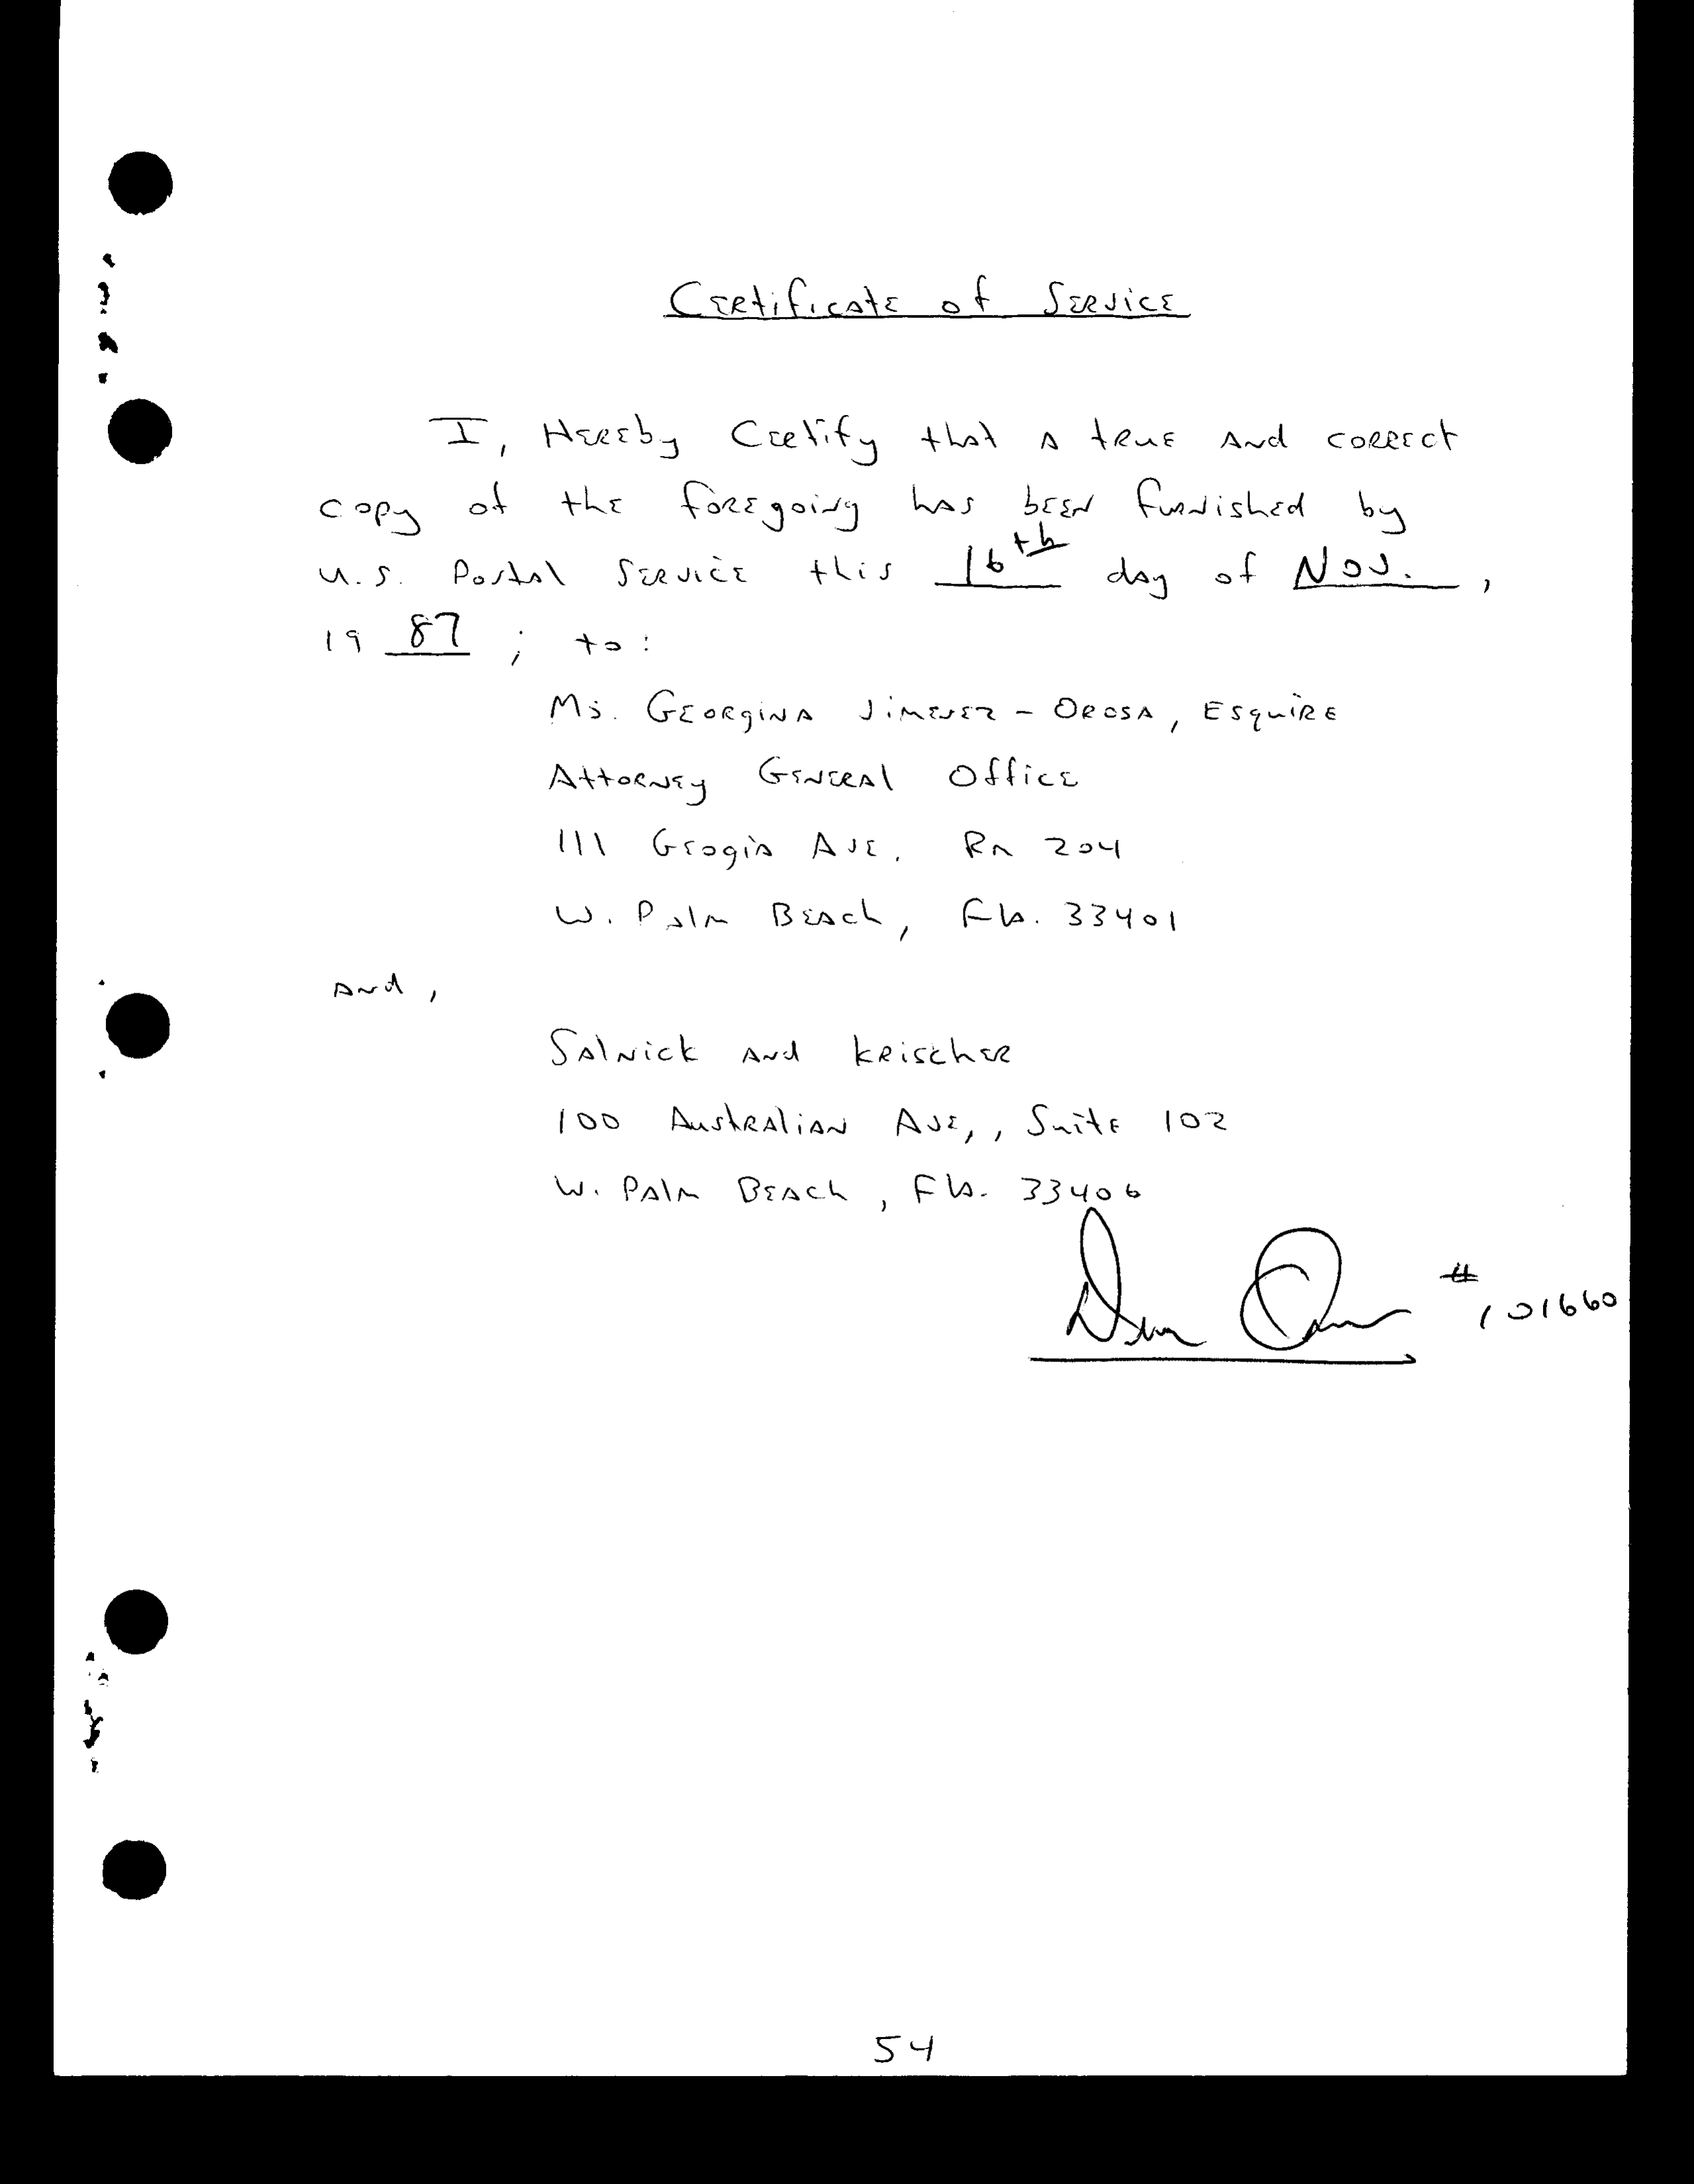 Certificate of Service
I, Hereby Certify that a true and correct
copy of the foregoing has been furnished by
U.S. Postal Service this 16th day of Nov.,
19 87 ; to:
Ms. Georgina Jimenez - Orosa, Esquire
Attorney General Office
111 Geogia Ave. Rm 204
W. Palm Beach, Fla. 33401
and,
Salnick and Krischer
100 Australian Ave,, Suite 102
W. Palm Beach, Fla. 33406
# 101660
54